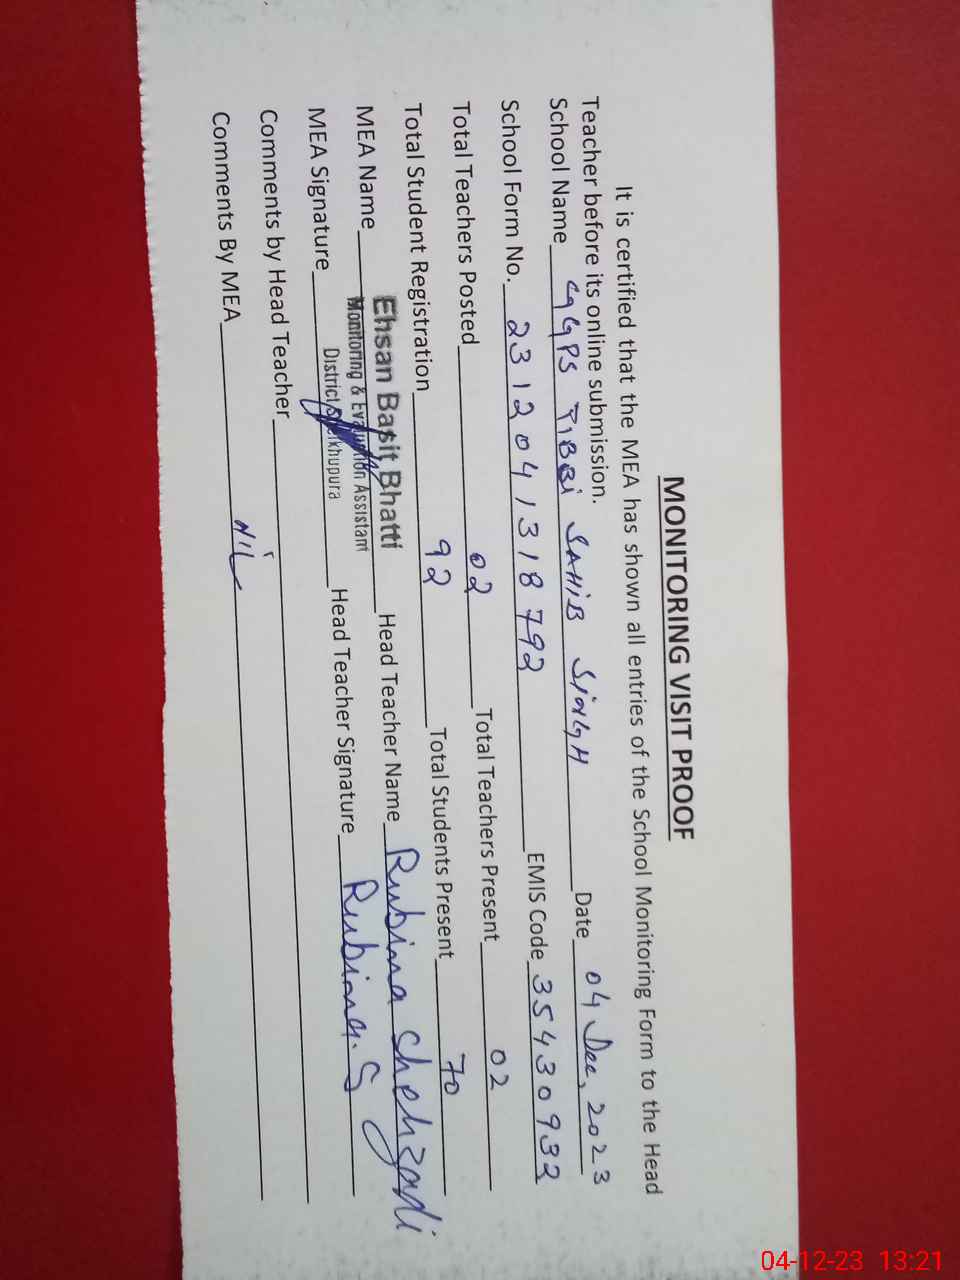 MONITORING VISIT PROOF
It is certified that the MEA has shown all entries of the School Monitoring Form to the Head
Teacher before its online submission.
School Name GGPS TIBBI SAHIB SINGH Date 04 Dec, 2023
School Form No. 2312041318792 EMIS Code 35430932
Total Teachers Posted 02 Total Teachers Present 02
Total Student Registration 92 Total Students Present 70
MEA Name Ehsan Basit Bhatti Head Teacher Name Rubina Shehzadi
Monitoring & Evaluation Assistant
District Sheikhupura
MEA Signature Head Teacher Signature Rubina.S
Comments by Head Teacher
Comments By MEA NIL
04-12-23 13:21